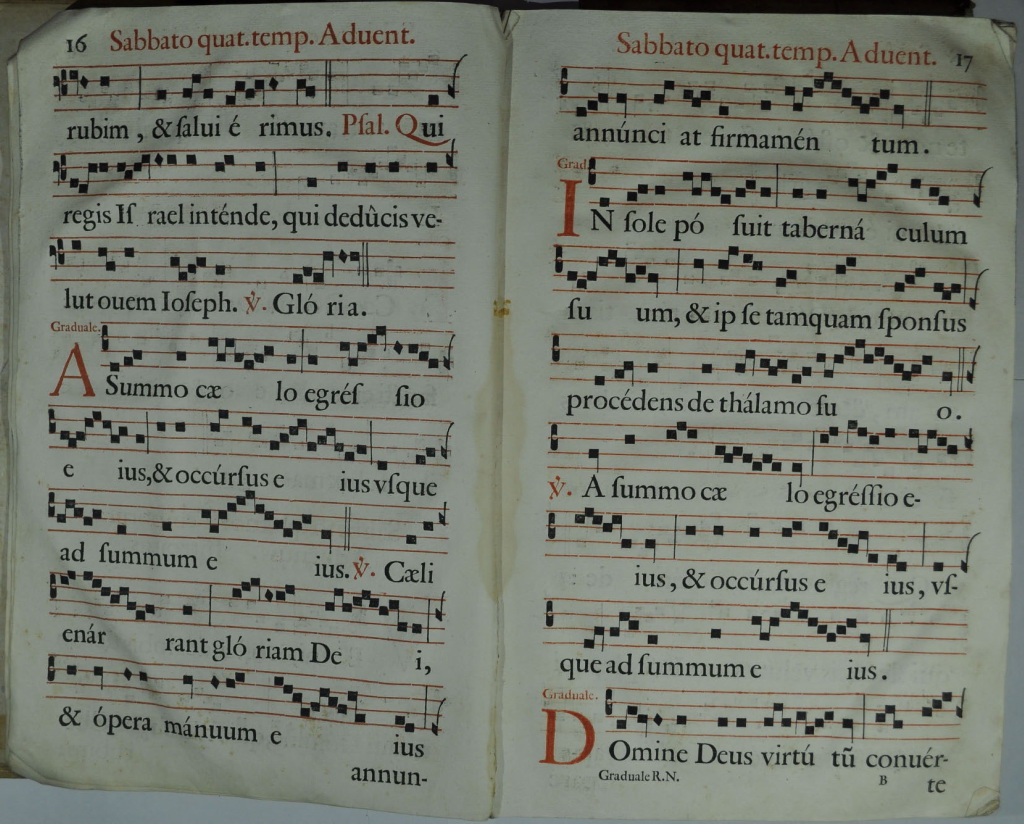 16 Sabbato quat.temp. Aduent.
rubim , & ſalui é rimus. Pſal. Qui
regis Iſ rael inténde, qui dedûcis ve-
lut ouem Ioſeph. ℣. Gló ria.
Graduale.
A Summo cæ lo egréſ ſio
e ius,& occúrſus e ius vſque
ad ſummum e ius. ℣. Cæli
enár rant gló riam De i,
& ópera mánuum e ius
annun-
Sabbato quat.temp. Aduent. 17
annúnci at firmamén tum.
Grad.
IN ſole pó ſuit taberná culum
ſu um, & ip ſe tamquam ſponſus
procédens de thálamo ſu o.
℣. A ſummo cæ lo egréſſio e-
ius, & occúrſus e ius, vſ-
que ad ſummum e ius.
Graduale.
DOmine Deus virtú tũ conuér-
Graduale R.N. B te